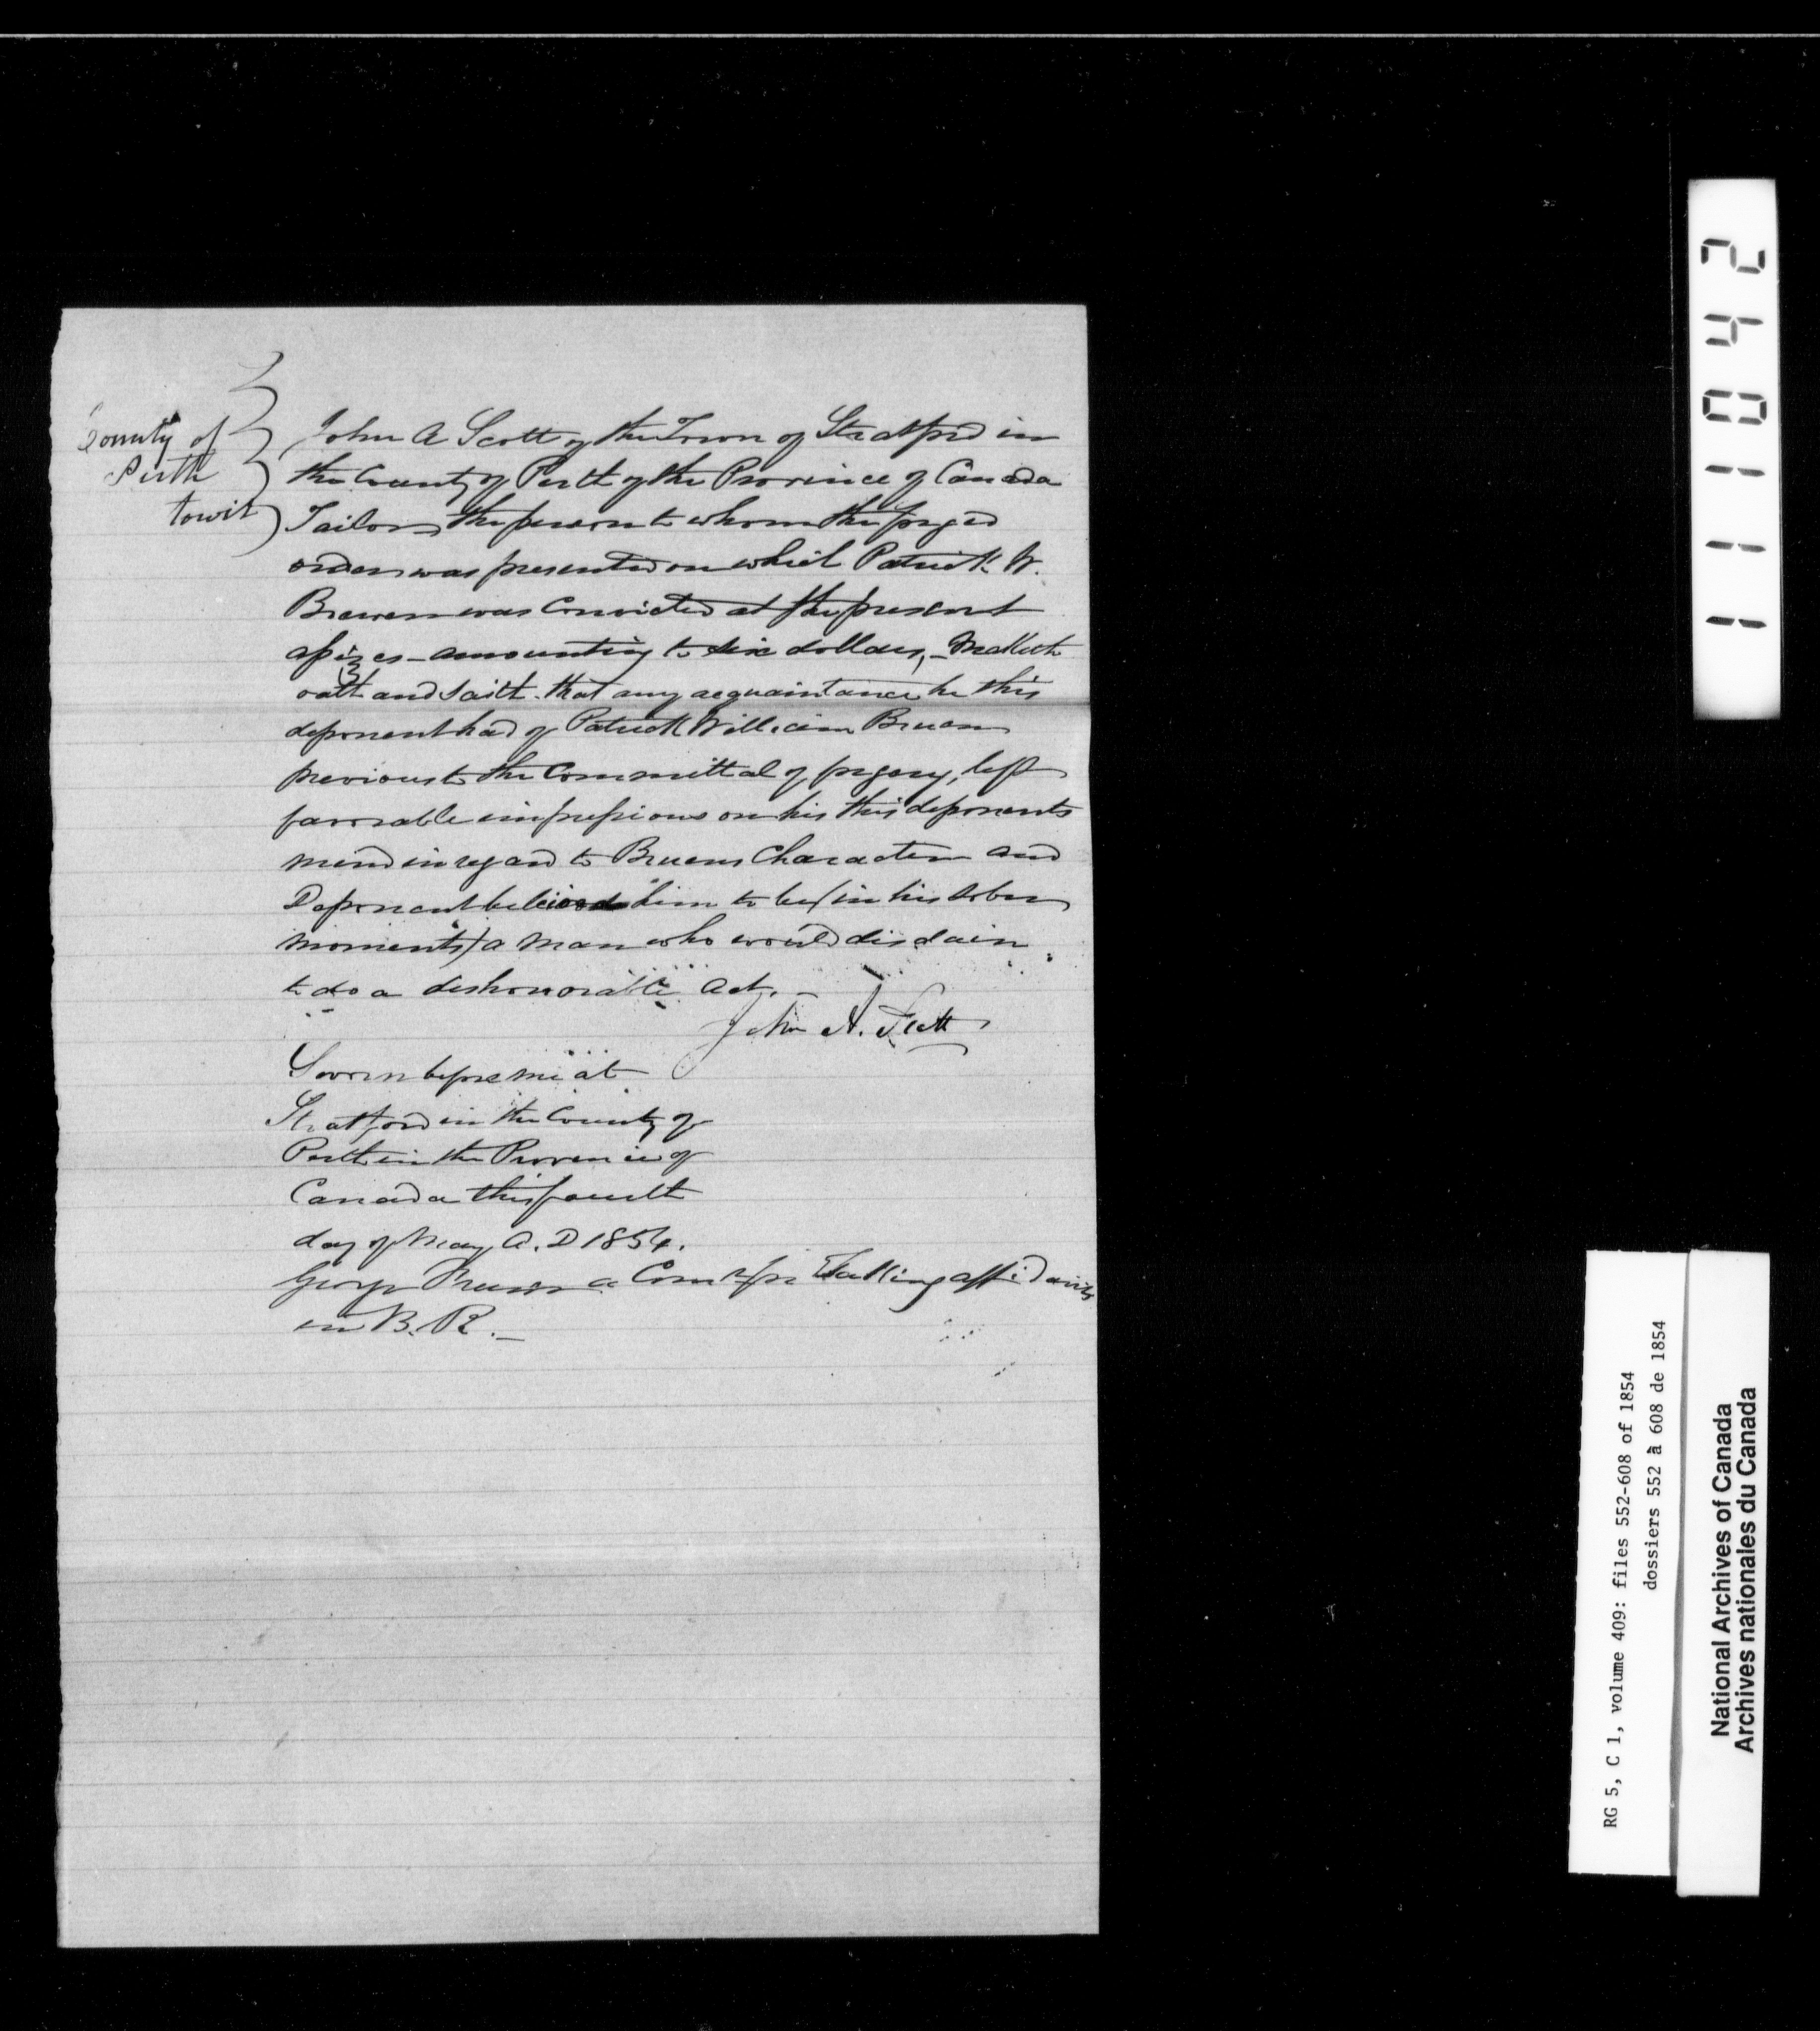 County of
Perth
towit
John A Scott of the Town of Stratford in
the County of Perth of the Province of Canada
Tailor, the person to whom the forged
order was presented on which Patrick W.
Brewen was Convicted at the present
assizes - amounting to six dollars, - Maketh
oath and saith that any acquaintance he this
deponent had of Patrick William Bruen
previous to the Committal of forgery, left
favorable impressions on his this deponents
mind in regard to Bruens Character and
Deponent believed him to be (in his sober
moments) a man who would disdain
to do a dishonorable act. -
John A. Scott
Sworn before me at
Stratford in the County of
Perth in the Province of
Canada this fourth
day of May A.D 1854.
George a Comr for Taking affidavits
in B.R. -
1111042
RG 5, C 1, volume 409: files 552-608 of 1854
dossiers 552 à 608 de 1854
National Archives of Canada
Archives nationales du Canada